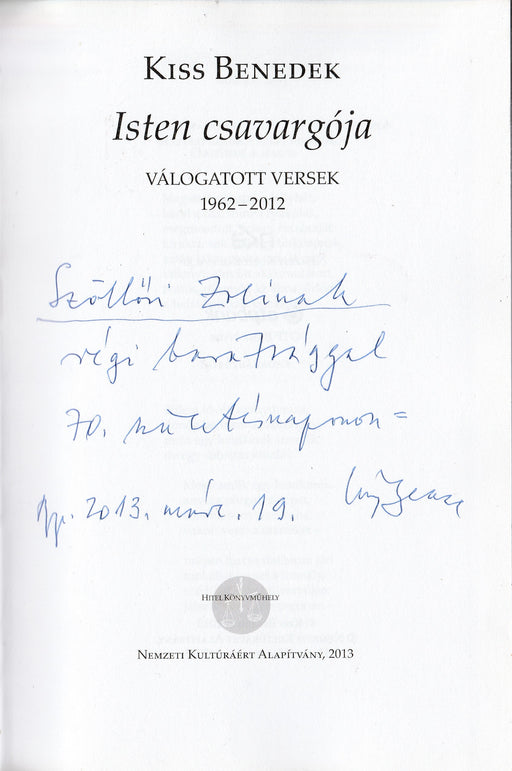 KISS BENEDEK
Isten csavargója
VÁLOGATOTT VERSEK
1962–2012
Szöllősi Zolinak
régi barátsággal
70. születésnapomon =
Bp. 2013. márc. 19.
HITEL KÖNYVMŰHELY
NEMZETI KULTÚRÁÉRT ALAPÍTVÁNY, 2013